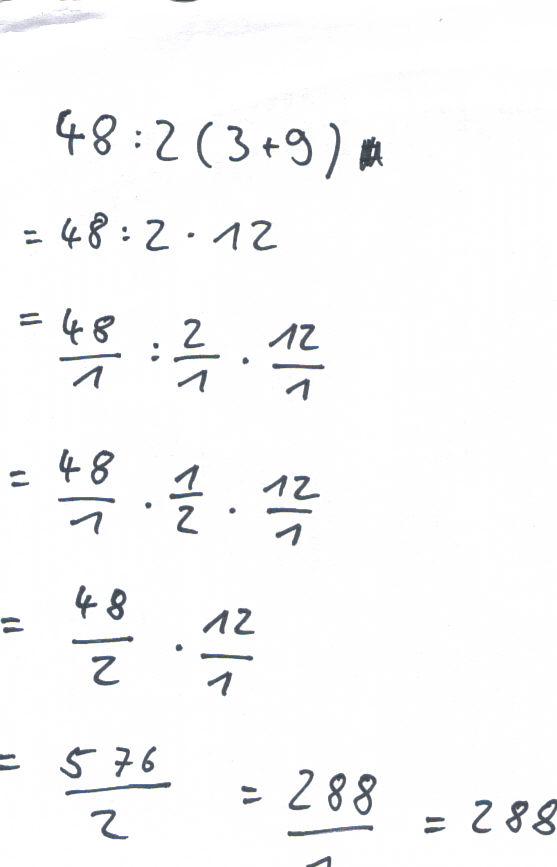 48 : 2 (3+9)
= 48 : 2 · 12
= 48/1 : 2/1 · 12/1
= 48/1 · 1/2 · 12/1
= 48/2 · 12/1
= 576/2 = 288/1 = 288